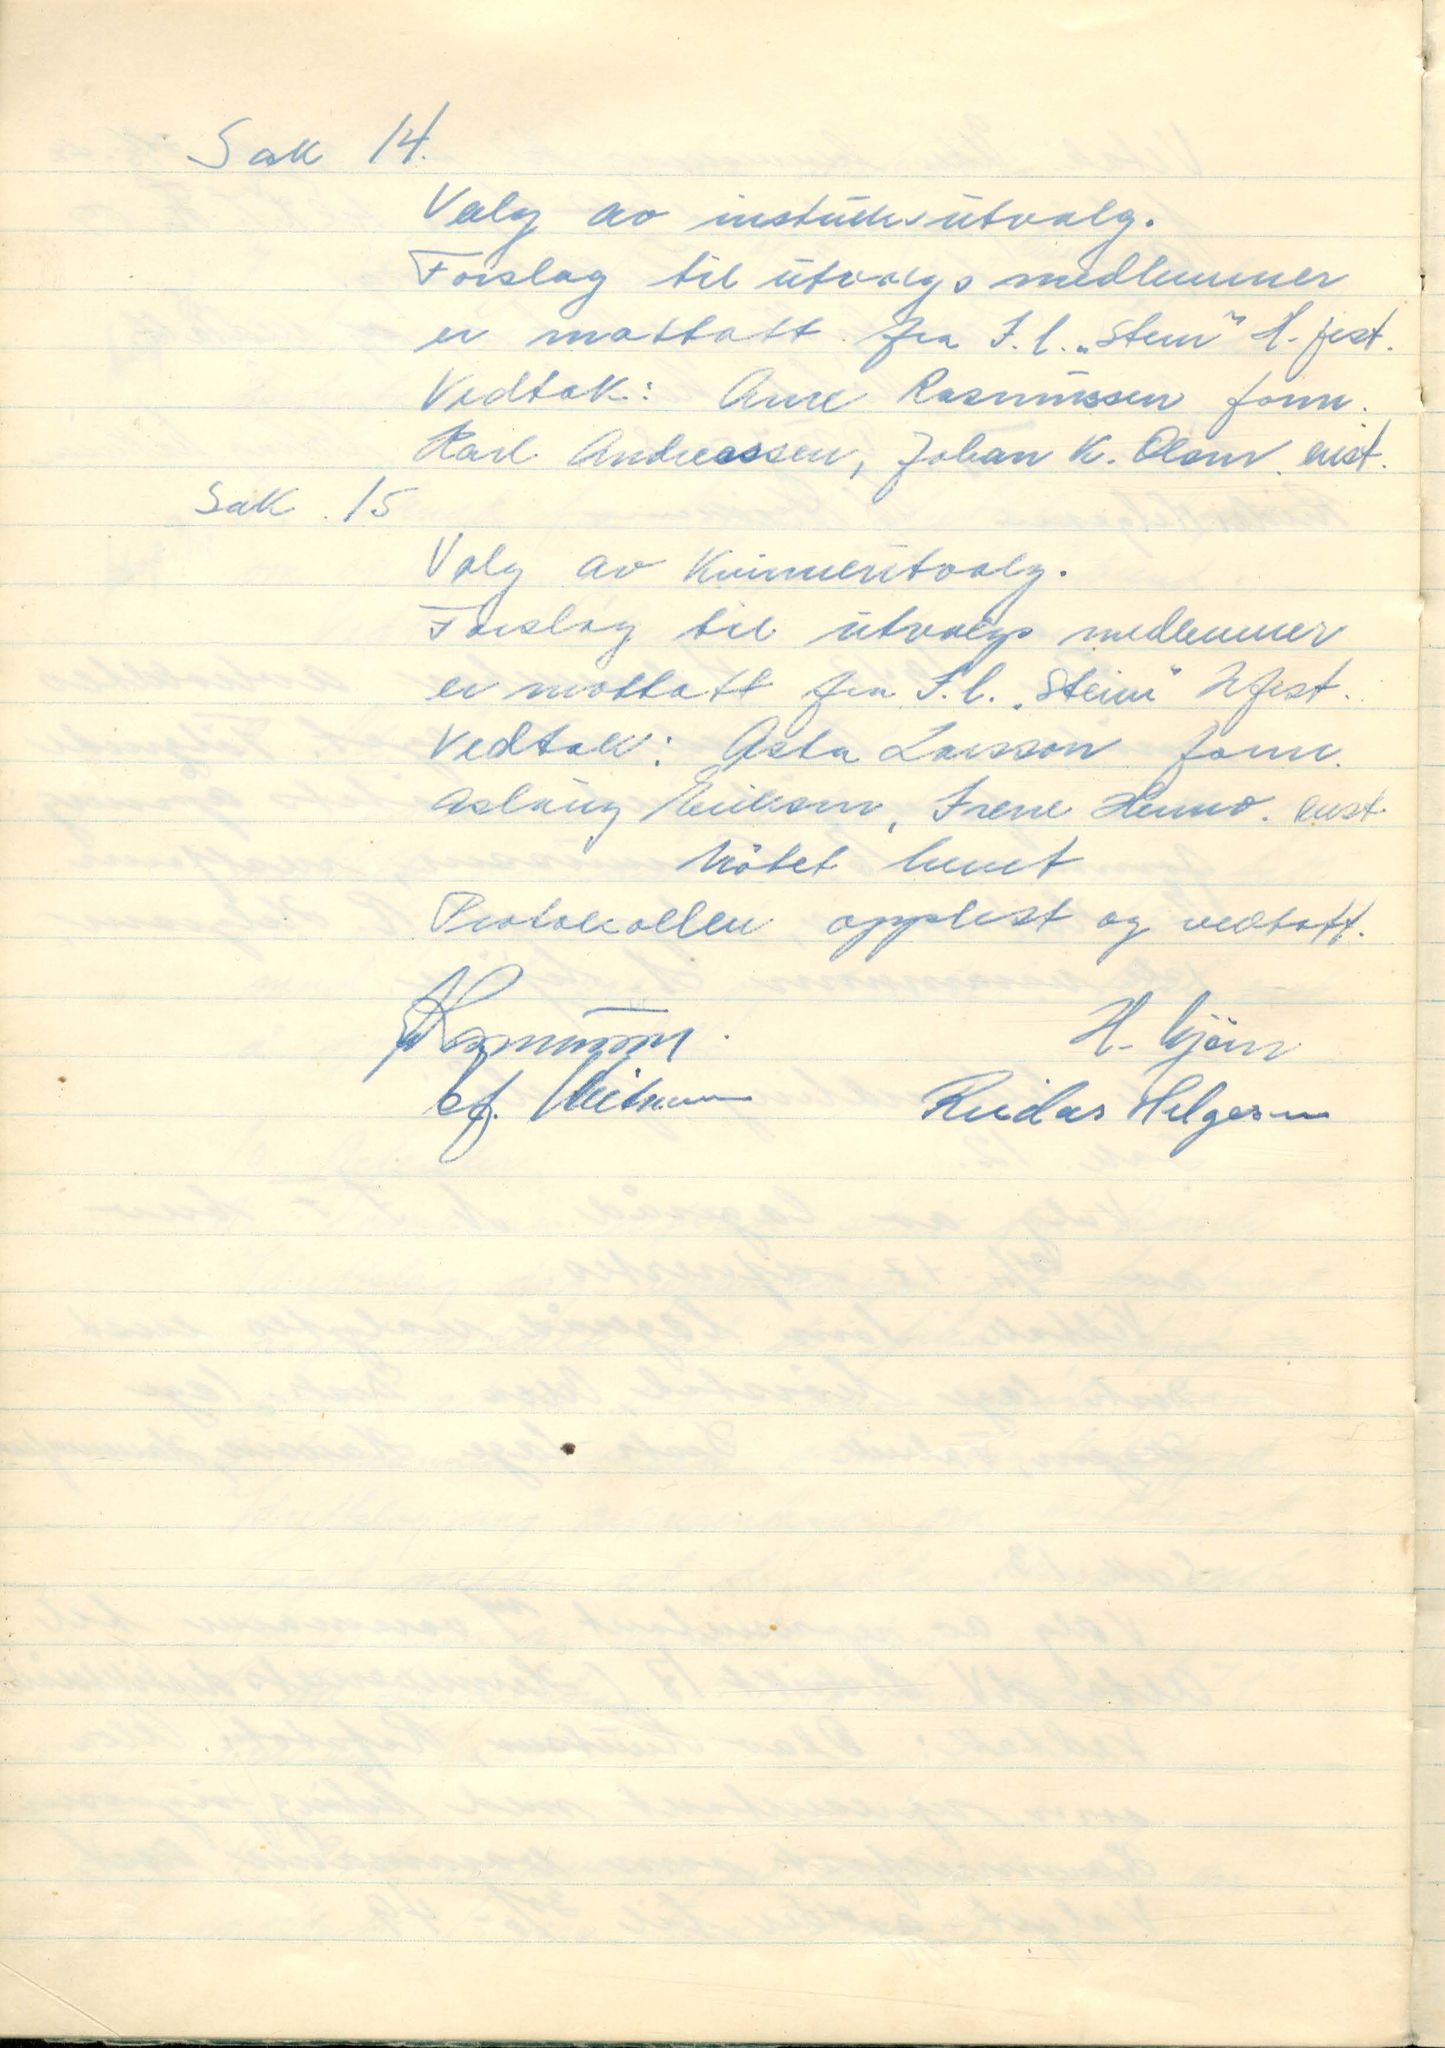 Sak 14.
Valg av instruksutvalg.
Forslag til utvalgs medlemmer
er mottatt fra I.l. „Stein" H.fest.
Vedtak: Arne Rasmussen form.
Karl Andreassen, Johan K. Olsen.
Sak 15
Valg av Kvinneutvalg.
Forslag til utvalgs medlemmer
er mottatt fra I.l. „Stein" Hfest.
Vedtak: Asta Larsson form.
Aslaug Eriksen, Irene Henno.
Møtet hevet
Protokollen opplest og vedtatt.
H.
Reidar Helgesen